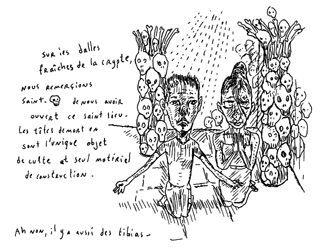 sur les dalles
fraîches de la crypte,
nous remerçions
saint. de nous avoir
ouvert ce saint lieu.
Les têtes de mort en
sont l'unique objet
de culte et seul matériel
de construction.
Ah non, il y a aussi des tibias.